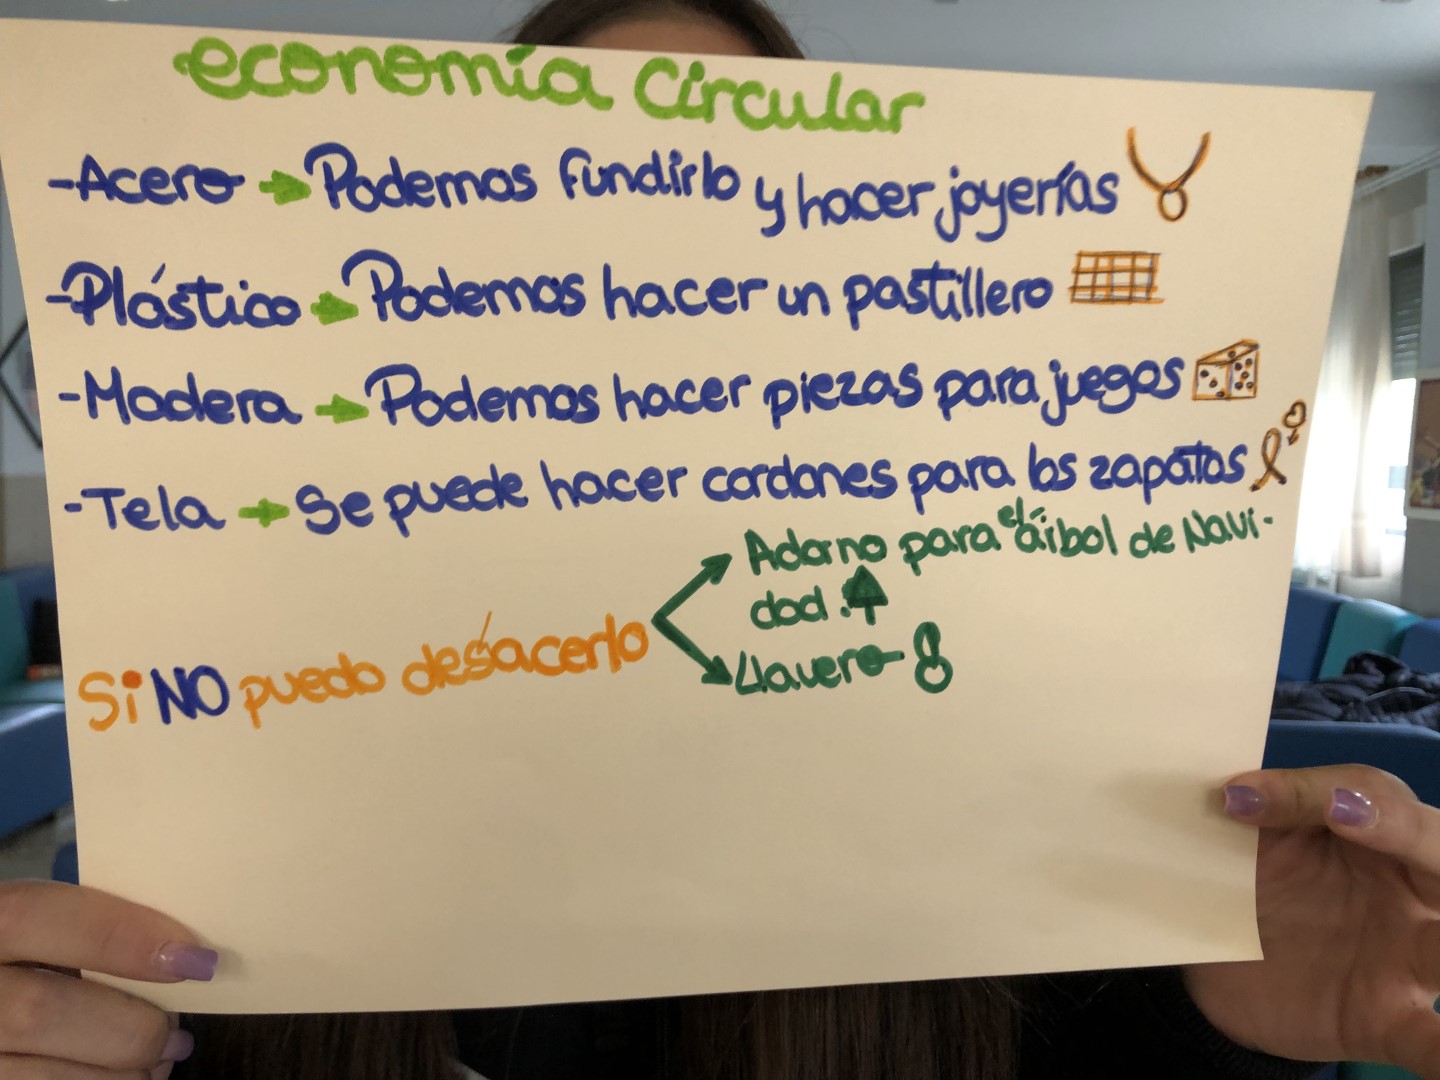 economía Circular
-Acero → Podemos fundirlo y hacer joyerías
-Plástico → Podemos hacer un pastillero
-Madera → Podemos hacer piezas para juegos
-Tela → Se puede hacer cordones para los zapatos
Adorno para el árbol de Navi-
dad.
Si NO puedo desacerlo
Llavero